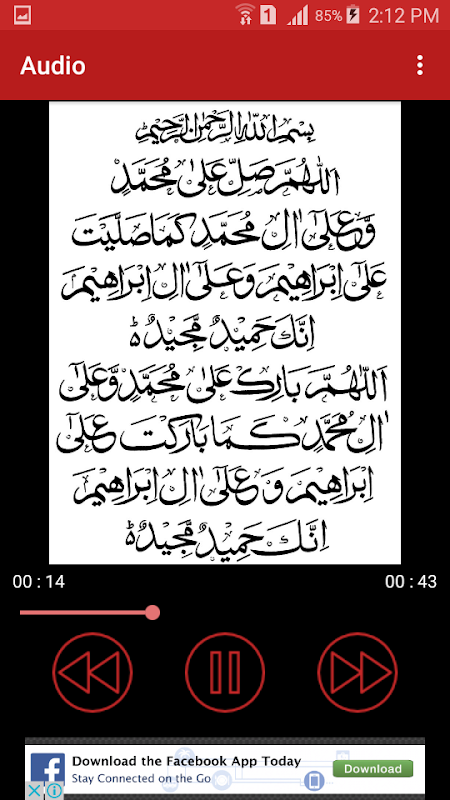 1 85% 2:12 PM
Audio
بسم الله الرحمن الرحيم
اَللّٰهُمَّ صَلِّ عَلٰى مُحَمَّدٍ
وَّعَلٰٓى اٰلِ مُحَمَّدٍ كَمَا صَلَّيْتَ
عَلٰٓى اِبْرَاهِيْمَ وَعَلٰٓى اٰلِ اِبْرَاهِيْمَ
اِنَّكَ حَمِيْدٌ مَّجِيْدٌ ؕ
اَللّٰهُمَّ بَارِكْ عَلٰى مُحَمَّدٍ وَّعَلٰٓى
اٰلِ مُحَمَّدٍ كَمَا بَارَكْتَ عَلٰٓى
اِبْرَاهِيْمَ وَعَلٰٓى اٰلِ اِبْرَاهِيْمَ
اِنَّكَ حَمِيْدٌ مَّجِيْدٌ ؕ
00 : 14 00 : 43
Download the Facebook App Today
Stay Connected on the Go
Download